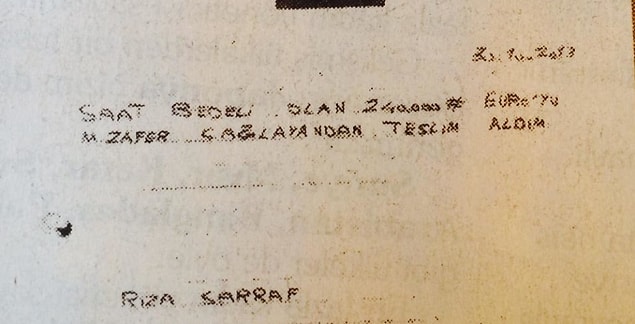 SAAT BEDELİ OLAN 240.000# EURO'YU
M. ZAFER ÇAĞLAYANDAN TESLİM ALDIM
RIZA SARRAF